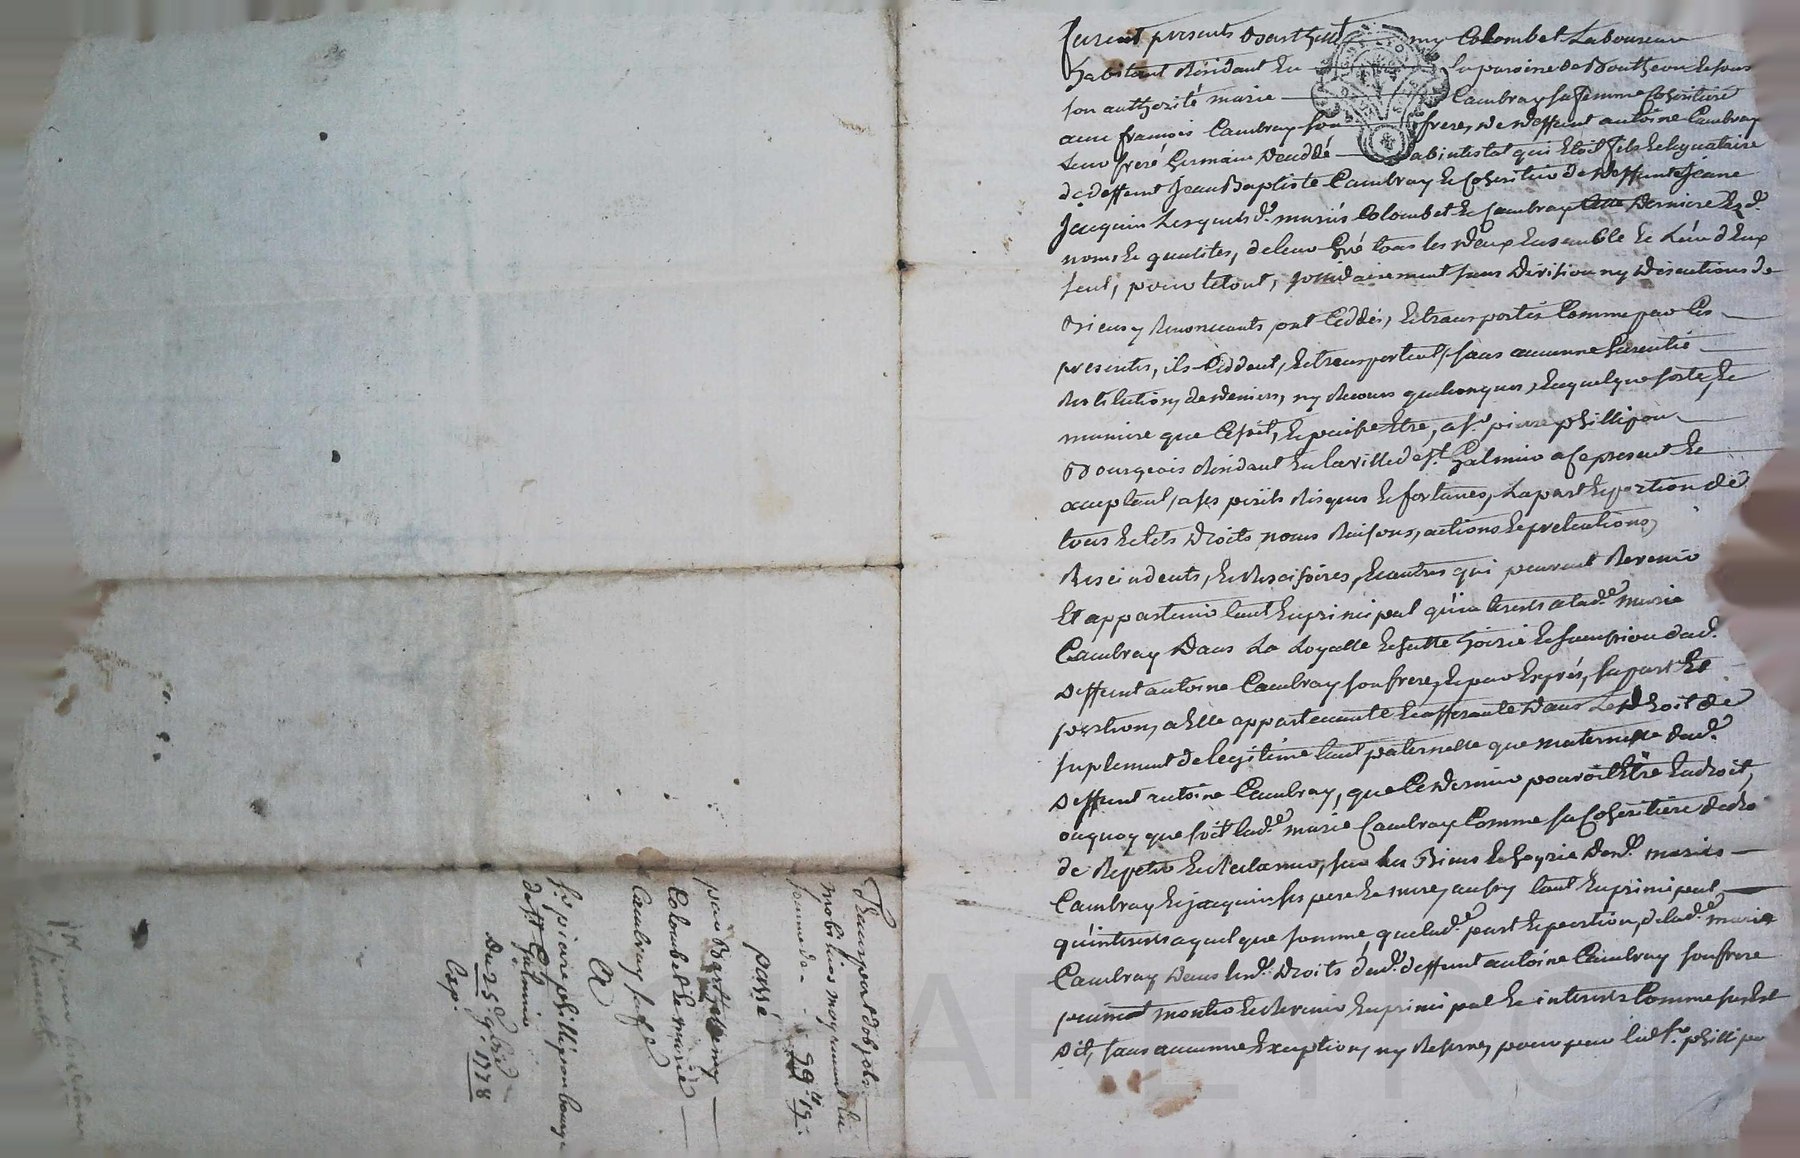 furent presents Barthelemy Colombet Laboureur
habitant Résidant En la paroisse de Boutheon Et sous
son authorité marie Cambray sa femme Cohéritiere
avec francois Cambray son frere, de deffunt antoine Cambray
Leur frere Germain Déceddé abintistat qui Etoit fils Et legataire
de deffunt Jean Baptiste Cambray Et Coheritier de deffunte Jeane
Jacquin Lesquels d. mariés Colombet Et Cambray Cette Derniere Esd.
noms Et qualités, de leur Gré tous les deux Ensemble Et L'un d'Eux
seul, pour le tout, solidairement sans Division ny discutions de
Biens y Renonceants, ont Ceddés, Et transportés Comme par Ces
presentes, ils Ceddent, Et transportent, sans aucunne Garentie
Restitution de deniers, ny Recours quelconques, En quelque sorte, Et
maniere que Ce soit, Et puisse Etre, a Sr. pierre phillipon
Bourgeois Résidant En la ville de St. Galmier a Ce present Et
acceptant, a ses périls Risques Et fortunes, La part Et portion de
tous Et tels Droits, noms Raisons, actions Et pretentions,
Rescindents, Et Rescisoires, Et autres qui peuvent Revenir
Et appartenir tant En principal qu'interests a lade. marie
Cambray Dans La Loyalle Et Hoirie Et sucession dud.
deffunt antoine Cambray son frere, Et par Exprés, sa part Et
portion, a Elle appartenante Et afferante Dans Le Droit de
suplement de legitime tant paternelle que maternelle dud.
deffunt antoine Cambray, que Ce dernier pouvoit Etre En droit,
ou quoy que soit lade. marie Cambray Comme sa Coheritiere
de Repeter Et Reclamer, sur les Biens Et hoyrie desd. mariés
Cambray Et jacquin ses pere Et mere, aussy tant En principal
qu'interests a quel que somme, que lad. part Et portion, de lade. marie
Cambray Dans lesd. Droits dud. deffunt antoine Cambray son frere
puissent monter Et Revenir En principal Et interests Comme sus Est
Dit, sans aucunne Exception, ny Reserve, pour par led. Sr. phillipon
Transport d'objets
mobiliers moyennant la
somme de 99ll 19s.
passé
par Barthelemy
Colombet Et marie
Cambray sa fe
A
Sr. pierre phillipon bourgs
de St. Galmier
Du 25. 9. 1778
Exp.